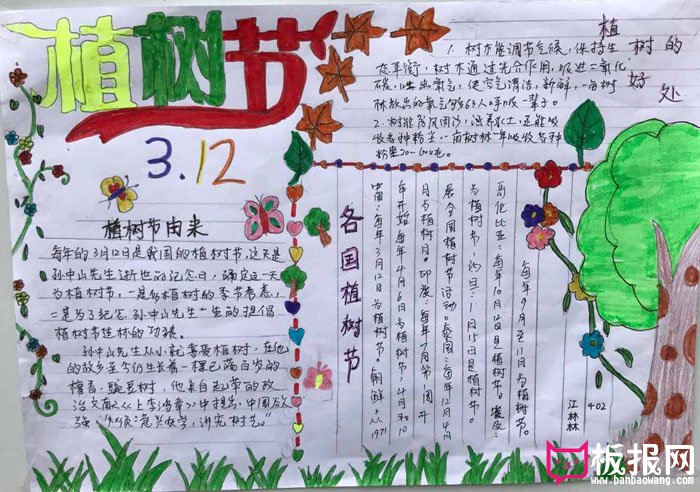 植树节
3.12
植树的好处
1. 树木能调节气候，保持生
态平衡，树木通过光合作用，吸进二氧化
碳，吐出氧气，使空气清洁、新鲜，一亩树
林放出的氧气够65人呼吸一辈子。
2. 树能防风固沙，涵养水土，还能吸
收各种粉尘，一亩树林一年吸收各种
粉尘20-60吨。
植树节由来
每年的3月12日是我国的植树节，这天是
孙中山先生逝世的纪念日，确定这一天
为植树节，一是从植树的季节考虑，
二是为了纪念孙中山先生一生的提倡
植树节造林的功绩。
孙中山先生从小就喜爱植树，在他
的故乡至今仍生长着一棵已满百岁的
檀香，豌豆树，他来自己草的政
治文献《上李鸿章》中提出，中国欲
强
各国植树节
哥伦比亚：每年10月12日是植树节。
每年9月至11月为植树节。
为植树节，约旦：1月15日是植树节。
展全国植树节活动。泰国：每年12月4日
月为植树日。印度：每年7月第一周开
年开始每年4月6日为植树节，4月和10
中国：每年3月12日为植树节。朝鲜：从1971
402
江林林
板报网
www.banbaowang.com